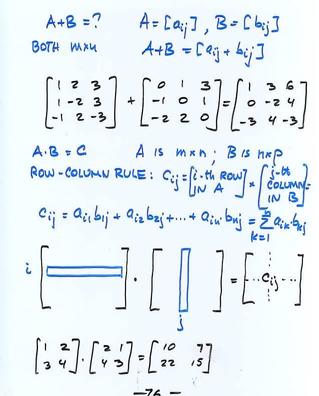 A+B = ? A = [aij] , B = [bij]
BOTH m×n A+B = [aij + bij]
[1 2 3] [0 1 3] [1 3 6]
[1 -2 3] + [-1 0 1] = [0 -2 4]
[-1 2 -3] [-2 2 0] [-3 4 -3]
A·B = C A is m×n ; B is n×p
ROW-COLUMN RULE: Cij = [i-th ROW IN A] * [j-th COLUMN IN B] =
Cij = ai1 b1j + ai2 b2j + ... + ain · bnj = Σ k=1 n aik · bkj
i [ ] · [ ] = [... Cij ...]
j
[1 2] · [2 1] = [10 7]
[3 4] [4 3] [22 15]
—76—